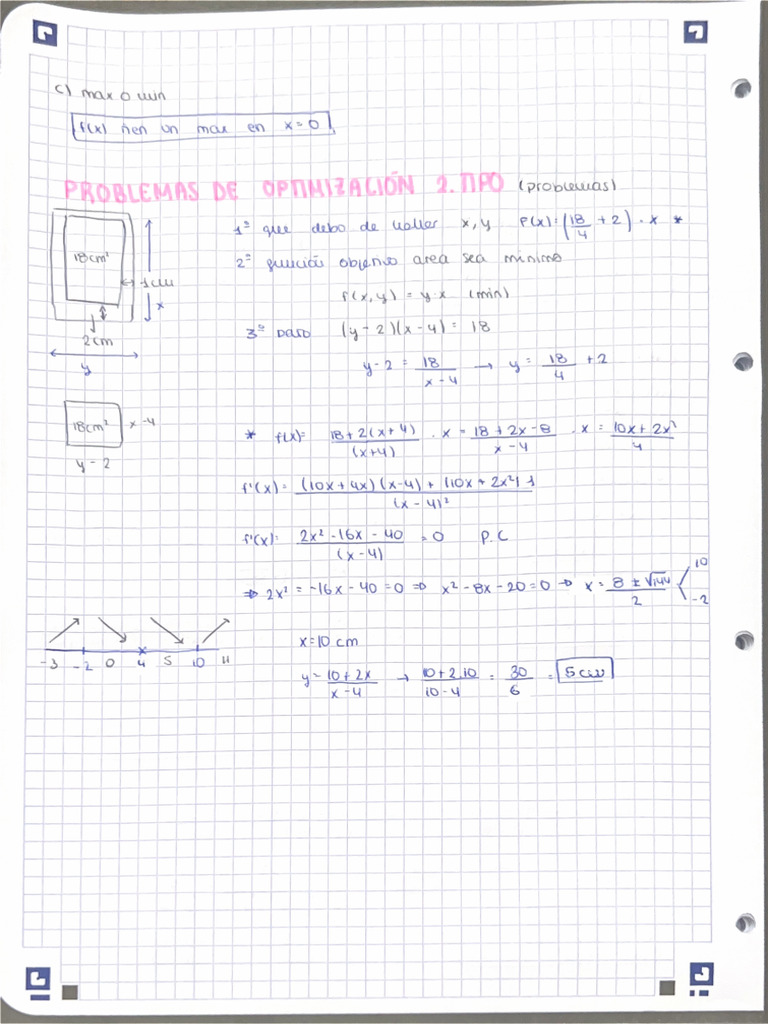 c) max o min
f(x) tien un max en x=0
PROBLEMAS DE OPTIMIZACIÓN 2.TIPO (problemas)
18cm²
1cm
x
2cm
y
1º que debo de haller x,y f(x): (18/4 + 2) · x *
2º función objetivo area sea minimo
f(x,y) = y·x (min)
3º paso (y-2)(x-4) = 18
y-2 = 18/(x-4) → y = 18/4 + 2
18cm² x-4
y-2
* f(x)= (18+2(x+4))/(x+4) · x = (18+2x-8)/(x-4) · x = (10x+2x²)/4
f'(x) = ((10x+4x)(x-4)+(10x+2x²)1)/(x-4)²
f'(x): (2x²-16x-40)/(x-4) = 0 P.C
⇒ 2x² = -16x-40=0 ⇒ x²-8x-20=0 ⇒ x = (8±√144)/2 < 10 -2
-3 -2 0 4 5 10 11
x=10 cm
y = (10+2x)/(x-4) → (10+2.10)/(10-4) = 30/6 = 5cm